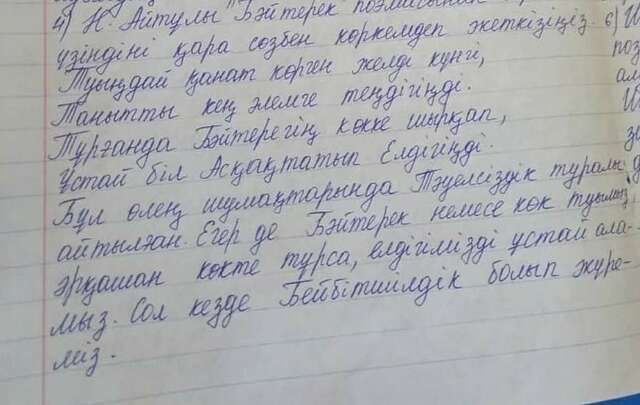 4) Н. Айтулы Бәйтерек поэмасынан
үзіндіні қара сөзбен көркемдеп жеткізіңіз. 6)
Туыңдай қанат көрген желді күнгі,
Танытты кең әлемге теңдігіңді.
Тұрғанда Бәйтерегің көкке шырқап,
Ұстай біл Асқақтатып Елдігіңді.
Бұл өлең шумақтарында Тәуелсіздік туралы
айтылған. Егер де Бәйтерек немесе көк туымыз
әрқашан көкте тұрса, елдігімізді ұстай ала-
мыз. Сол кезде Бейбітшілдік болып жүре-
міз.